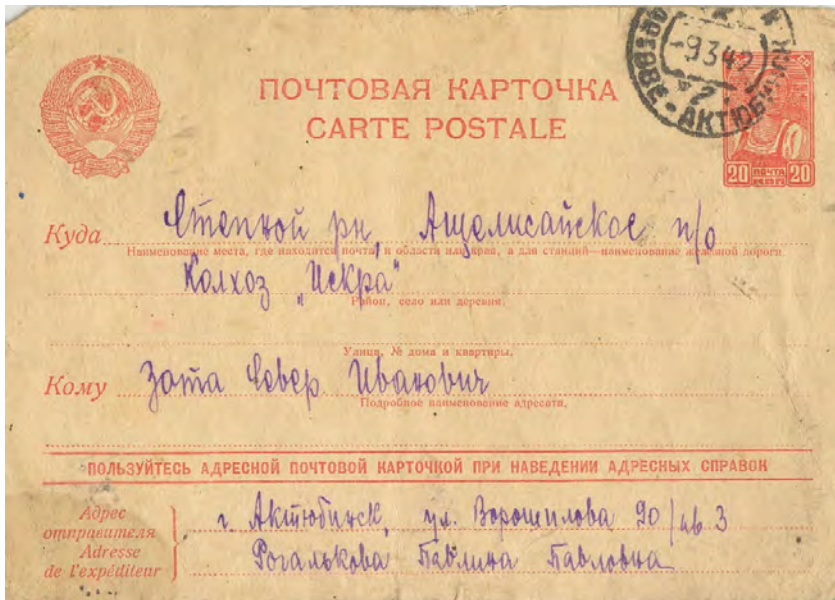 ПОЧТОВАЯ КАРТОЧКА
CARTE POSTALE
-9342
АКТЮБИНСК
20 ПОЧТА 20
Куда Степной рн, Ащелисайское п/о
Наименование места, где находится почта, и области или края, а для станций—наименование железной дороги.
Колхоз „Искра"
Район, село или деревня.
Улица, № дома и квартиры.
Кому Зота Север Иванович
Подробное наименование адресата.
ПОЛЬЗУЙТЕСЬ АДРЕСНОЙ ПОЧТОВОЙ КАРТОЧКОЙ ПРИ НАВЕДЕНИИ АДРЕСНЫХ СПРАВОК
Адрес отправителя
Adresse de l'expéditeur
г. Актюбинск, ул. Ворошилова 90/кв 3
Рогалькова Павлина Павловна